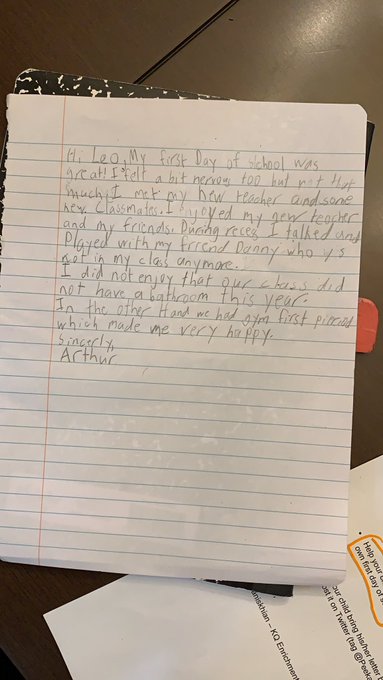 Hi Leo, My first Day of school was
great! I felt a bit nervous too but not that
much. I met my new teacher and some
new Classmates. I njoyed my new teacher
and my friends. During reces I talked and
Played with my friend Danny who is
not in my class anymore.
I did not enjoy that our class did
not have a bathroom this year.
In the other Hand we had gym first pieriod
which made me very happy.
Sincerly,
Arthur
Help your
own first day of s
our child bring his/her letter b
ost it on Twitter (tag @Peek
umiskhian – KQ Enrichment